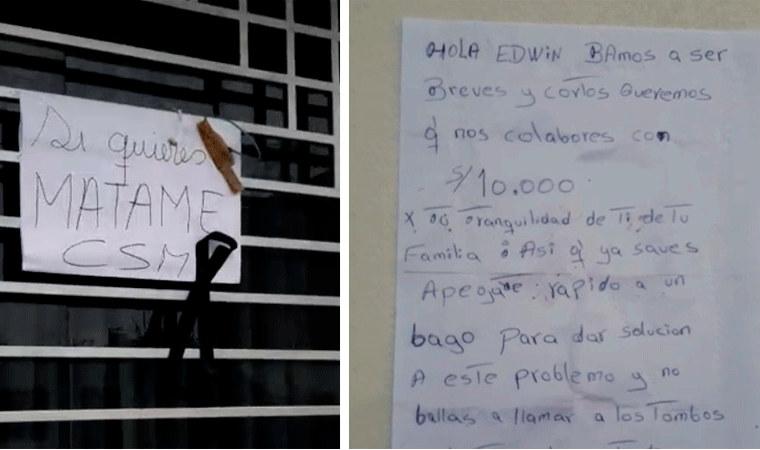 Si quieres
MATAME
CSM
HOLA EDWIN BAmos a ser
Breves y cortos Queremos
q nos colabores con
S/10.000
x tranquilidad de Ti, de Tu
Familia Asi q ya saves
Apegate rapido a un
bago para dar solucion
A este problema y no
ballas a llamar a los Tombos